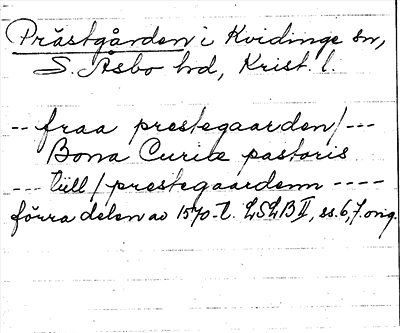 Prästgården i Kvidinge sn,
S. Åsbo hd, Krist. l.
-- fraa prestegaarden / ---
Bona Curiæ pastoris
--- till / prestegaardenn ----
förra delen av 1570-t. LSLB II, ss. 6, 7. orig.